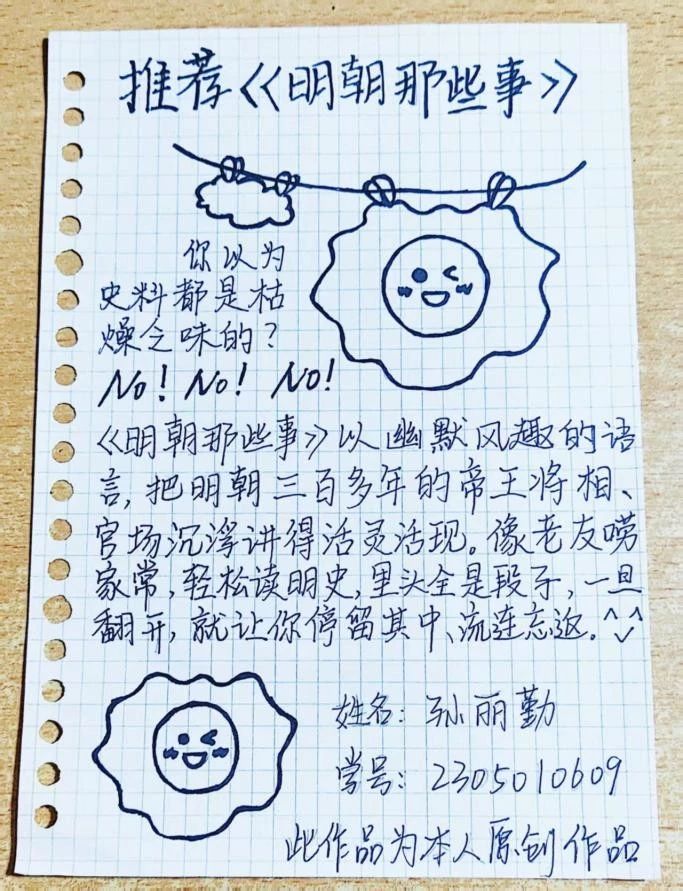 推荐《明朝那些事》
你以为
史料都是枯
燥乏味的？
No！No！No！
《明朝那些事》以幽默风趣的语
言，把明朝三百多年的帝王将相、
官场沉浮讲得活灵活现。像老友唠
家常，轻松读明史，里头全是段子，一旦
翻开，就让你停留其中、流连忘返。^ˇ^
姓名：孙丽勤
学号：2305010609
此作品为本人原创作品